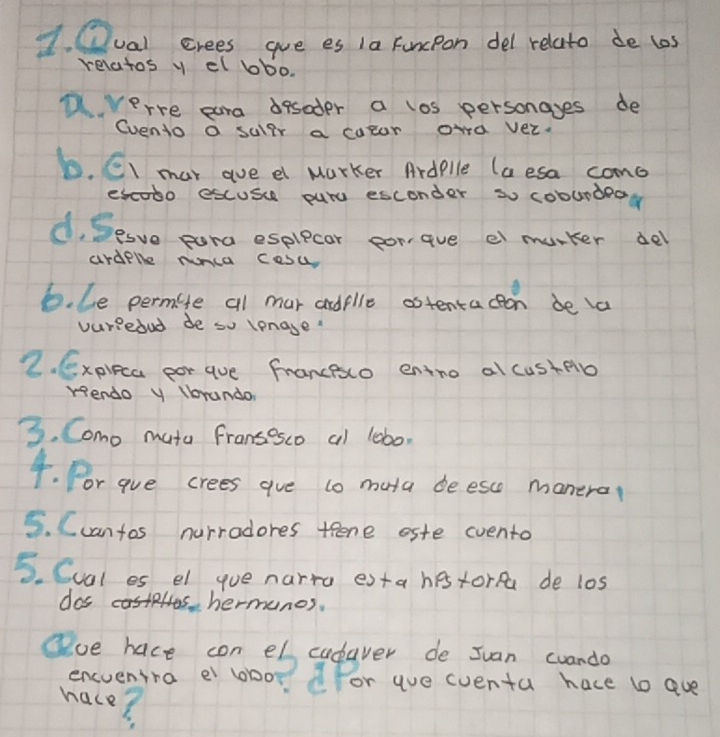 1. Qual crees que es la funcion del relato de los
relatos y el lobo.
a. verre para disader a los personages de
Cuento a salir a cazar otra vez.
b. El mar que el Marker Ardille la esa como
escobo escusa para esconder su cobardea
d. Sesve para esplecar por que el marker del
ardille nunca casa
b. Le permite al mar ardille ostentacion de la
variedad de su lenaje.
2. Explica por que Francesco entro al castello
riendo y llorando.
3. Como mata fransesco al lobo.
4. Por que crees que lo mata de esa manera
5. Cuantos narradores tiene este cuento
5. Cual es el que narra esta historia de los
dos hermanos.
Que hace con el cadaver de Juan cuando
encuentra el lobo? ¿Por que cuenta hace lo que
hace?